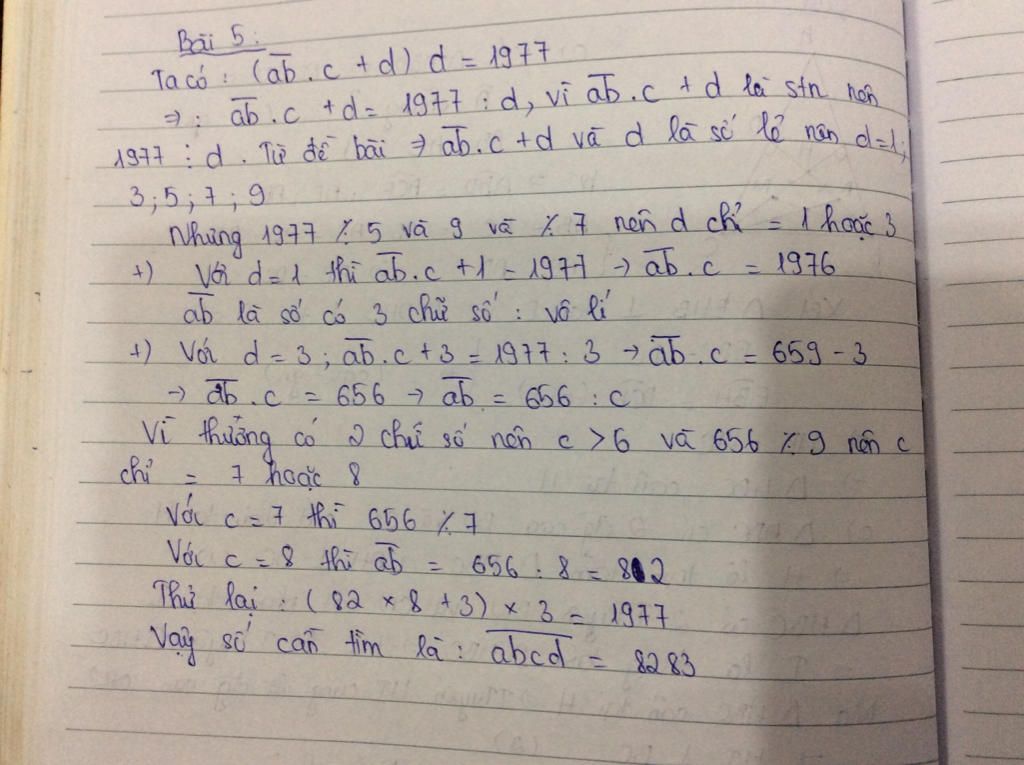 Bài 5:
Ta có: (ab̅.c + d) d = 1977
⇒: ab̅.c + d = 1977 : d, vì ab̅.c + d là stn nên
1977 ⋮ d. Từ đề bài ⇒ ab̅.c + d và d là số lẻ nên d=1;
3; 5; 7; 9
Nhưng 1977 ⋮̸ 5 và 9 và ⋮̸ 7 nên d chỉ = 1 hoặc 3
+) Với d=1 thì ab̅.c + 1 = 1977 → ab̅.c = 1976
ab̅ là số có 3 chữ số: vô lí
+) Với d = 3; ab̅.c + 3 = 1977 : 3 → ab̅.c = 659 - 3
→ ab̅.c = 656 → ab̅ = 656 : c
Vì thương có 2 chữ số nên c > 6 và 656 ⋮̸ 9 nên c
chỉ = 7 hoặc 8
Với c = 7 thì 656 ⋮̸ 7
Với c = 8 thì ab̅ = 656 : 8 = 82
Thử lại: (82 × 8 + 3) × 3 = 1977
Vậy số cần tìm là: a̅b̅c̅d̅ = 8283